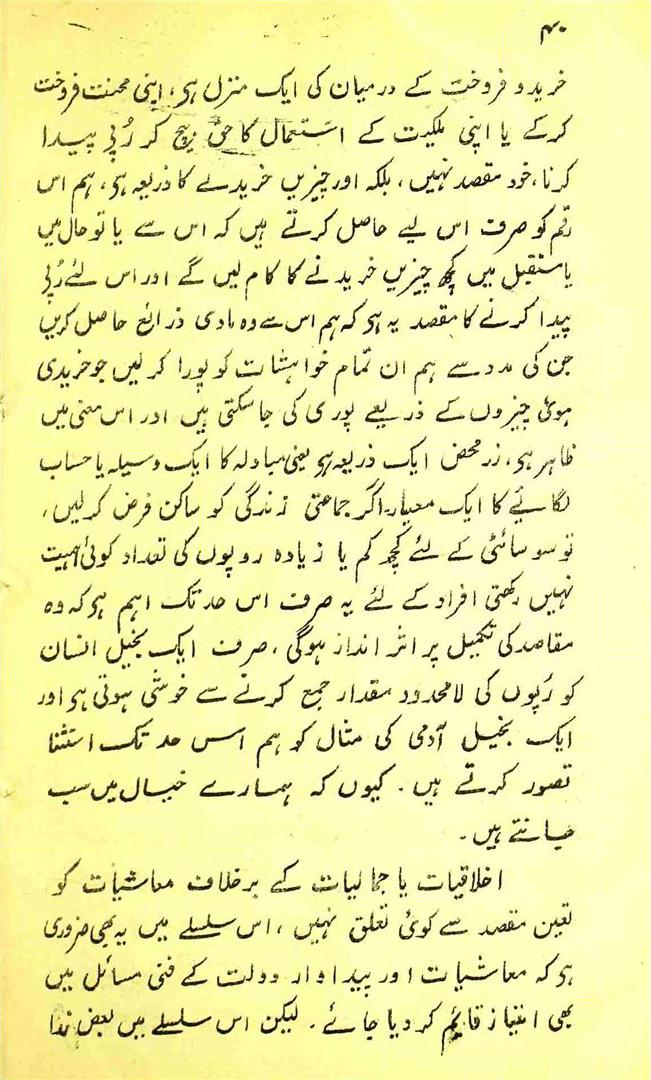 ۴۰
خرید و فروخت کے درمیان کی ایک منزل ہی، اپنی محنت فروخت
کرکے یا اپنی ملکیت کے استعمال کا حق بیچ کر رُپی پیدا
کرنا، خود مقصد نہیں، بلکہ اور چیزیں خریدنے کا ذریعہ ہی، ہم اس
رقم کو صرف اس لیے حاصل کرتے ہیں کہ اس سے یا تو حال میں
یا مستقبل میں کچھ چیزیں خریدنے کا کام لیں گے اور اس لئے رُپی
پیدا کرنے کا مقصد یہ ہی کہ ہم اس سے وہ مادی ذرائع حاصل کریں
جن کی مدد سے ہم ان تمام خواہشات کو پورا کرلیں جو خریدی
ہوئی چیزوں کے ذریعے پوری کی جاسکتی ہیں اور اس معنی میں
ظاہر ہی، زر محض ایک ذریعہ ہی یعنی مبادلہ کا ایک وسیلہ یا حساب
لگائیے کا ایک معیار۔ اگر جماعتی زندگی کو ساکن فرض کرلیں،
تو سوسائٹی کے لئے کچھ کم یا زیادہ روپوں کی تعداد کوئی اہمیت
نہیں رکھتی افراد کے لئے یہ صرف اس حد تک اہم ہو کہ وہ
مقاصد کی تکمیل پر اثر انداز ہوگی، صرف ایک بخیل انسان
کو رُپوں کی لامحدود مقدار جمع کرنے سے خوشی ہوتی ہی اور
ایک بخیل آدمی کی مثال کو ہم اس حد تک استثنا
تصور کرتے ہیں۔ کیوں کہ ہمارے خیال میں سب
جانتے ہیں۔
اخلاقیات یا جمالیات کے برخلاف معاشیات کو
تعین مقصد سے کوئی تعلق نہیں، اس سلسلے میں یہ بھی ضروری
ہی کہ معاشیات اور پیداوار دولت کے فنی مسائل میں
بھی امتیاز قائم کردیا جائے۔ لیکن اس سلسلے میں بعض